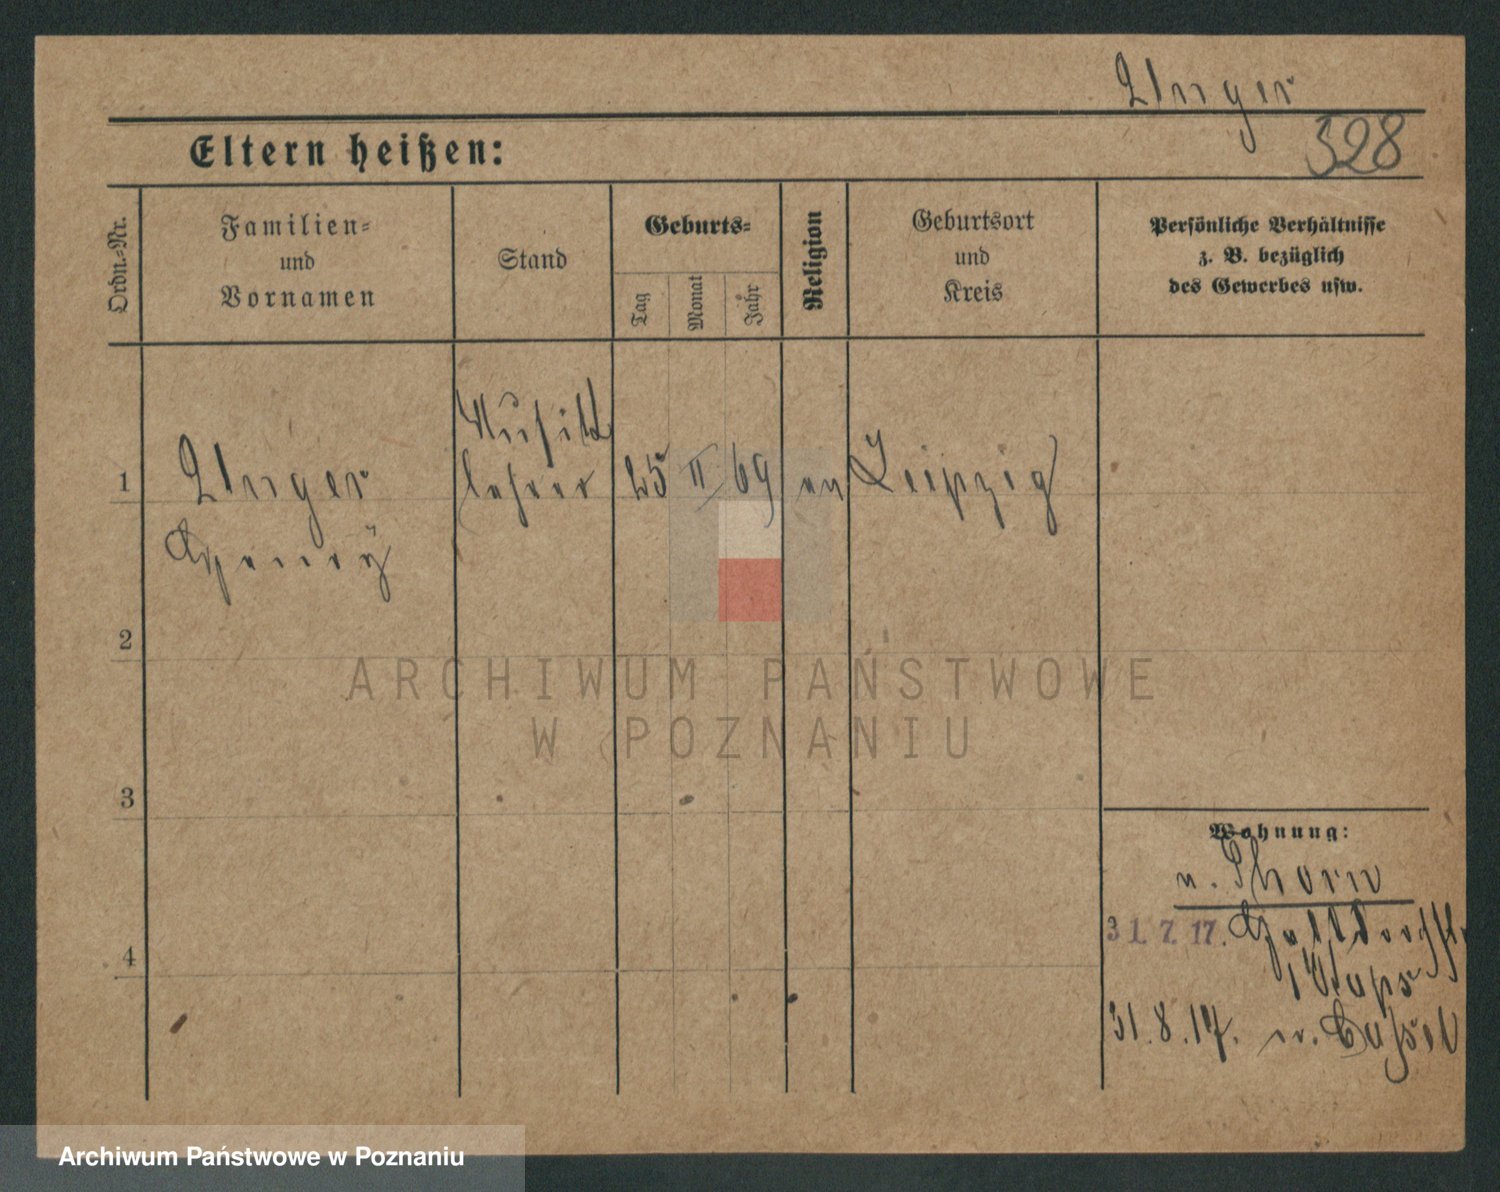 Unger
328
Eltern heißen:
Ordn.-Nr.
Familien-
und
Vornamen
Stand
Geburts-
Tag
Monat
Jahr
Religion
Geburtsort
und
Kreis
Persönliche Verhältnisse
z. B. bezüglich
des Gewerbes usw.
1
Unger
Henry
Musik
lehrer
25 II 69
ev
Leipzig
2
3
4
Wohnung:
n. Thorn
31. 7. 17.
31. 8. 17. n. Cassel
ARCHIWUM PAŃSTWOWE
W POZNANIU
Archiwum Państwowe w Poznaniu